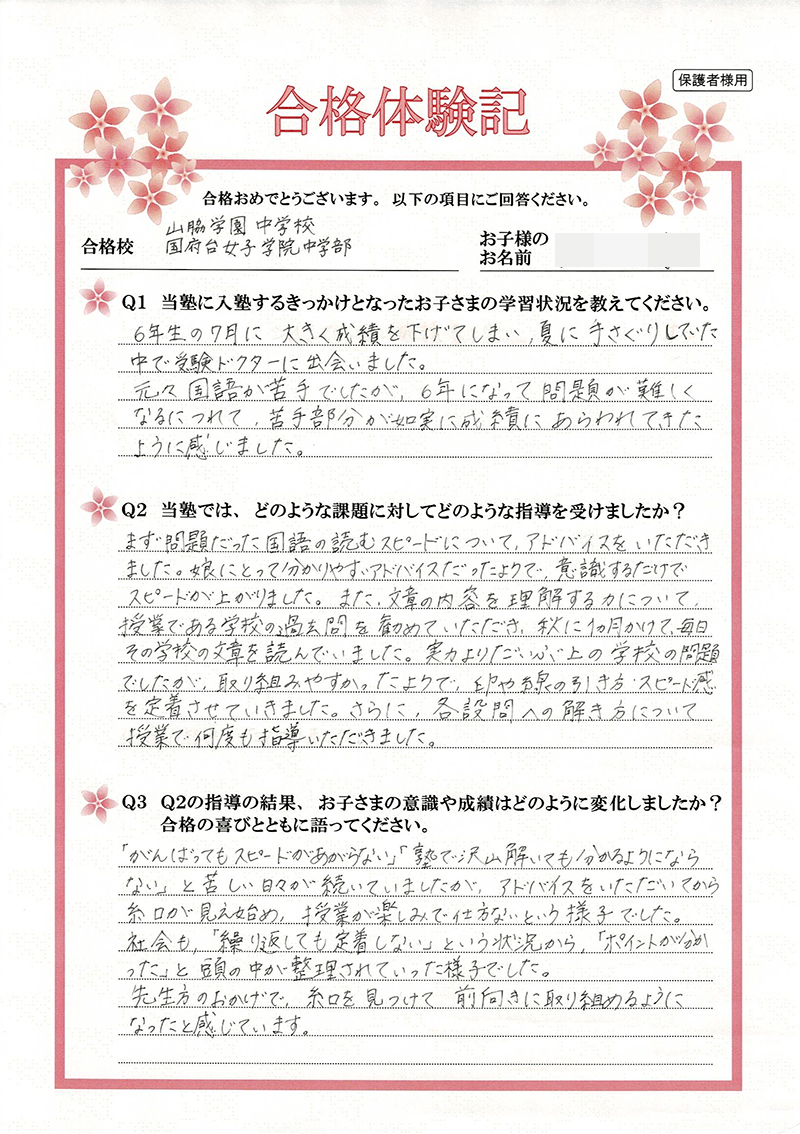 保護者様用
合格体験記
合格おめでとうございます。以下の項目にご回答ください。
合格校
山脇学園 中学校
国府台女子学院中学部
お子様の
お名前
Q1 当塾に入塾するきっかけとなったお子さまの学習状況を教えてください。
6年生の7月に 大きく成績を下げてしまい、夏に手さぐりしていた
中で受験ドクターに出会いました。
元々国語が苦手でしたが、6年になって問題が難しく
なるにつれて、苦手部分が如実に成績にあらわれてきた
ように感じました。
Q2 当塾では、どのような課題に対してどのような指導を受けましたか?
まず問題だった国語の読むスピードについて、アドバイスをいただき
ました。娘にとって分かりやすいアドバイスだったようで、意識するだけで
スピードが上がりました。また、文章の内容を理解する力について、
授業である学校の過去問を勧めていただき、秋に1ヵ月かけて、毎日
その学校の文章を読んでいました。実力よりだいぶ上の学校の問題
でしたが、取り組みやすかったようで、印や線の引き方・スピード感
を定着させていきました。さらに、各設問への解き方について
授業で何度も指導いただきました。
Q3 Q2の指導の結果、お子さまの意識や成績はどのように変化しましたか?
合格の喜びとともに語ってください。
「がんばってもスピードがあがらない」「塾で沢山解いても分かるようになら
ない」と苦しい日々が続いていましたが、アドバイスをいただいてから
糸口が見え始め、授業が楽しみで仕方ないという様子でした。
社会も、「繰り返しても定着しない」という状況から、「ポイントが分か
った」と頭の中が整理されていった様子でした。
先生方のおかげで、糸口を見つけて 前向きに取り組めるように
なったと感じています。